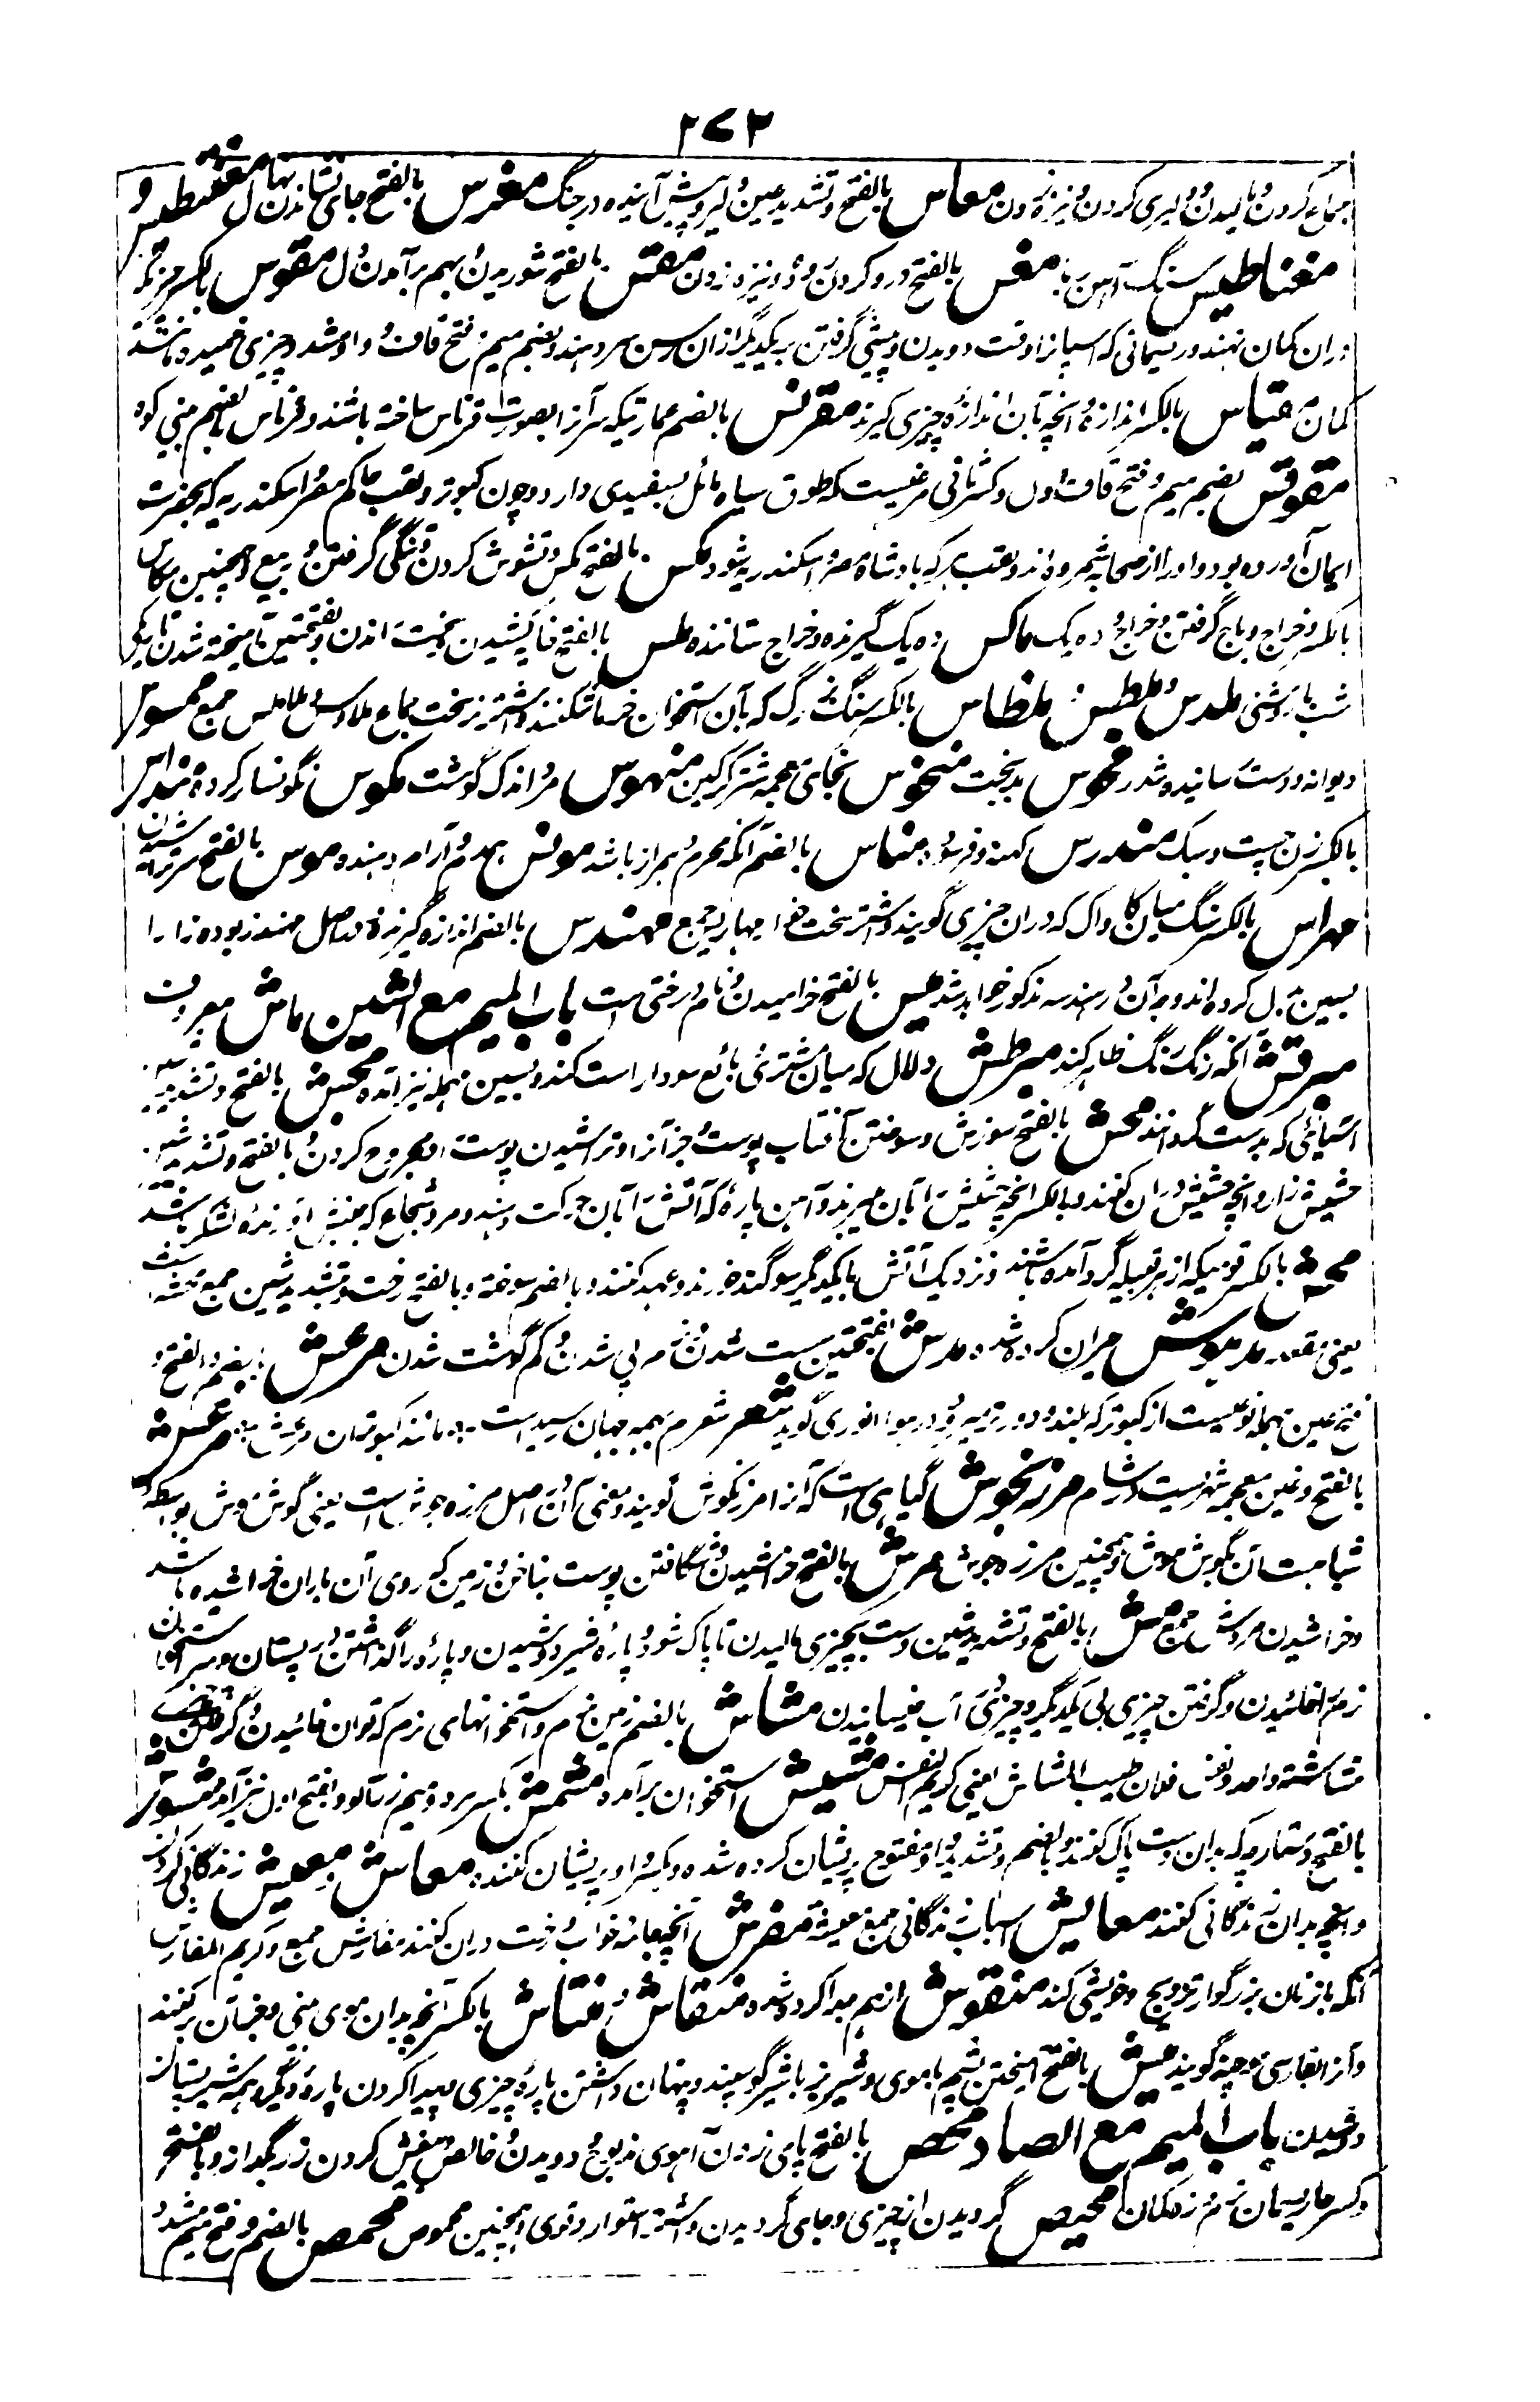 ۲۷۲
جماع کردن و مالیدن و دلیری کردن و نیزه زدن معاس بالفتح و تشدید عین دلیر و پیش آینده در جنگ مغرس بالفتح جای نشاندن نهال مغنطیس و
مغناطیس سنگ آهن ربا مغس بالفتح درد کردن روده و نیزه زدن مقس بالفتح شوریدن و بهم برآمدن دل مقوس بالکسر چیزیکه
دران کمان نهند و ریسمانی که اسپانرا وقت دویدن و پیشی گرفتن بر یکدیگر ازان رسن سر دهند و بضم میم و فتح قاف و واو مشدد چیزی خمیده مانند
کمان مقیاس بالکسر اندازه و انچه بآن اندازه چیزی گیرند مقرنس بالضم عمارتیکه سر آنرا بصورت قرناس ساخته باشند و قرناس بالضم بینی کوه
مقوقس بضم میم و فتح قاف اول و کسر ثانی مرغیست که طوق سیاه مائل بسفیدی دارد چون کبوتر و لقب حاکم مصر و اسکندریه که بحضرت
ایمان آورده بود و او را از صحابه شمرده اند و لقب هر که بادشاه مصر و اسکندریه شود مکس بالفتح مکس و تشویش کردن و تنگی گرفتن در بیع و همچنین مکاس
بالکسر و خراج و باج گرفتن و خراج و ده یک ماکس ده یک گیرنده و خراج ستاننده ملس بالفتح خایه کشیدن و سخت راندن و بفتحتین آمیخته شدن تاریکی
شب با روشنی ملدس و ملطس و ملطاس بالکسر سنگ بزرگ که بآن استخوان خرما شکنند و شتر نر سخت جماع ملادس و ملاطس جمع ممسوس
دیوانه و دست رسانیده شده منحوس بدبخت منخوس بخای معجمه شتر گرگین منهوس مرد اندک گوشت منکوس نگونسار کرده منداس
بالکسر زن چست و سبک مندرس کهنه و فرسوده مناس بالضم آنکه محرم و همراز باشد مونس همدم و آرام دهنده موس بالفتح ستردن
مهراس بالکسر سنگ میان کاواک که دران چیزی کوبند و شتر سخت خوار مهاریس جمع مهندس بالضم اندازه گیرنده در اصل مهندز بوده زا را
بسین بدل کرده اند و وجه آن در هندسه مذکور خواهد شد میس بالفتح خرامیدن و نام درختی است باب المیم مع الشین ماش معروف
مبرقش آنکه رنگ رنگ ظاهر کند مبرطش دلال که میان مشتری و بائع سودا راست کند و بسین مهمله نیز آمده مجش بالفتح و تشدید شین
آسیائی که بدست گردانند محش بالفتح سوزش و سوختن آفتاب پوست و جز آنرا و تراشیدن پوست و مجروح کردن و بالفتح و تشدید شین
حشیش زار و انچه حشیش دران کنند و بالکسر انچه حشیش را بآن میبرند و آهن پاره که آتش را بآن حرکت دهند و مرد شجاع که جنبش آورنده لشکر باشد
محش بالکسر قومیکه از هر قبیله گرد آمده باشند و نزدیک آتش با یکدیگر سوگند خورند و عهد کنند و بالضم سوخته و بالفتح رخت و تشدید شین جمع محشه
یعنی مقعد مدهوش حیران کرده شده مدش بفتحتین سست شدن و کم گوشت شدن مرعش بضم و الفتح و
فتح عین مهمله نوعیست از کبوتر که بلند و دور میپرد در هوا انوری گوید شعر شعرم بهمه جهان رسیدست ؞ مانند کبوتران مرعش ؞ مرغش
بالفتح و غین معجمه شهریست در شام مرزنجوش گیاهی است که آنرا مرزنگوش گویند و معنی آن در اصل مرزه جوش است یعنی گوش موش بواسطه
شباهت آن بگوش موش و همچنین مرزه جوش مرش بالفتح خراشیدن و شگافتن پوست بناخن و زمین که روی آن باران خراشیده باشد
و خراشیدن مروش جمع مش بالفتح و تشدید شین دست بچیزی مالیدن تا پاک شود و پاره شیر دوشیدن و پاره را گذاشتن در پستان و سر استخوان
نرم را خائیدن و گرفتن چیزی پی یکدیگر و چیزی در آب خیسانیدن مشاش بالضم زمین نرم و استخوانهای نرم که توان خائیدن
مشاشة واحد و نفس فلان طیب المشاش یعنی کریم النفس مشیش استخوان برآمده مشمش بکسر هر دو میم زردآلو و بفتح اول نیز آمده مشوش
بالفتح دستمارچه که بدان دست پاک کنند و بالضم و تشدید واو مفتوح پریشان کرده شده و بکسر واو پریشان کننده معاش معیش زندگانی کردن
و انچه بدان زندگانی کنند معایش اسباب زندگانی جمع معیشة مفرش انچه جامه خواب و رخت دران کنند مفارش جمع و کریم المفارش
آنکه با زنان بزرگوار تزویج و خویشی کند منقوش از هم جدا کرده شده منقاش و منتاش بالکسر آنچه بدان موی بینی و غیر آن بر کنند
و آنرا بفارسی موچینه گویند میش بالفتح آمیختن پشم با موی و شیر بز با شیر گوسپند و پنهان داشتن پاره چیزی و پیدا کردن پاره دیگر و نیمه شیر پستان
دوشیدن باب المیم مع الصاد محص بالفتح پای زدن آهوی مذبوح و دویدن و خالص و بیغش کردن زر بگداز و بالفتح
و کسر حا ریسمان نرم زه کمان محیص گردیدن از چیزی و جای گردیدن و اشتر استوار و قوی و همچنین ممحوص محمص بالضم و فتح میم مشدد